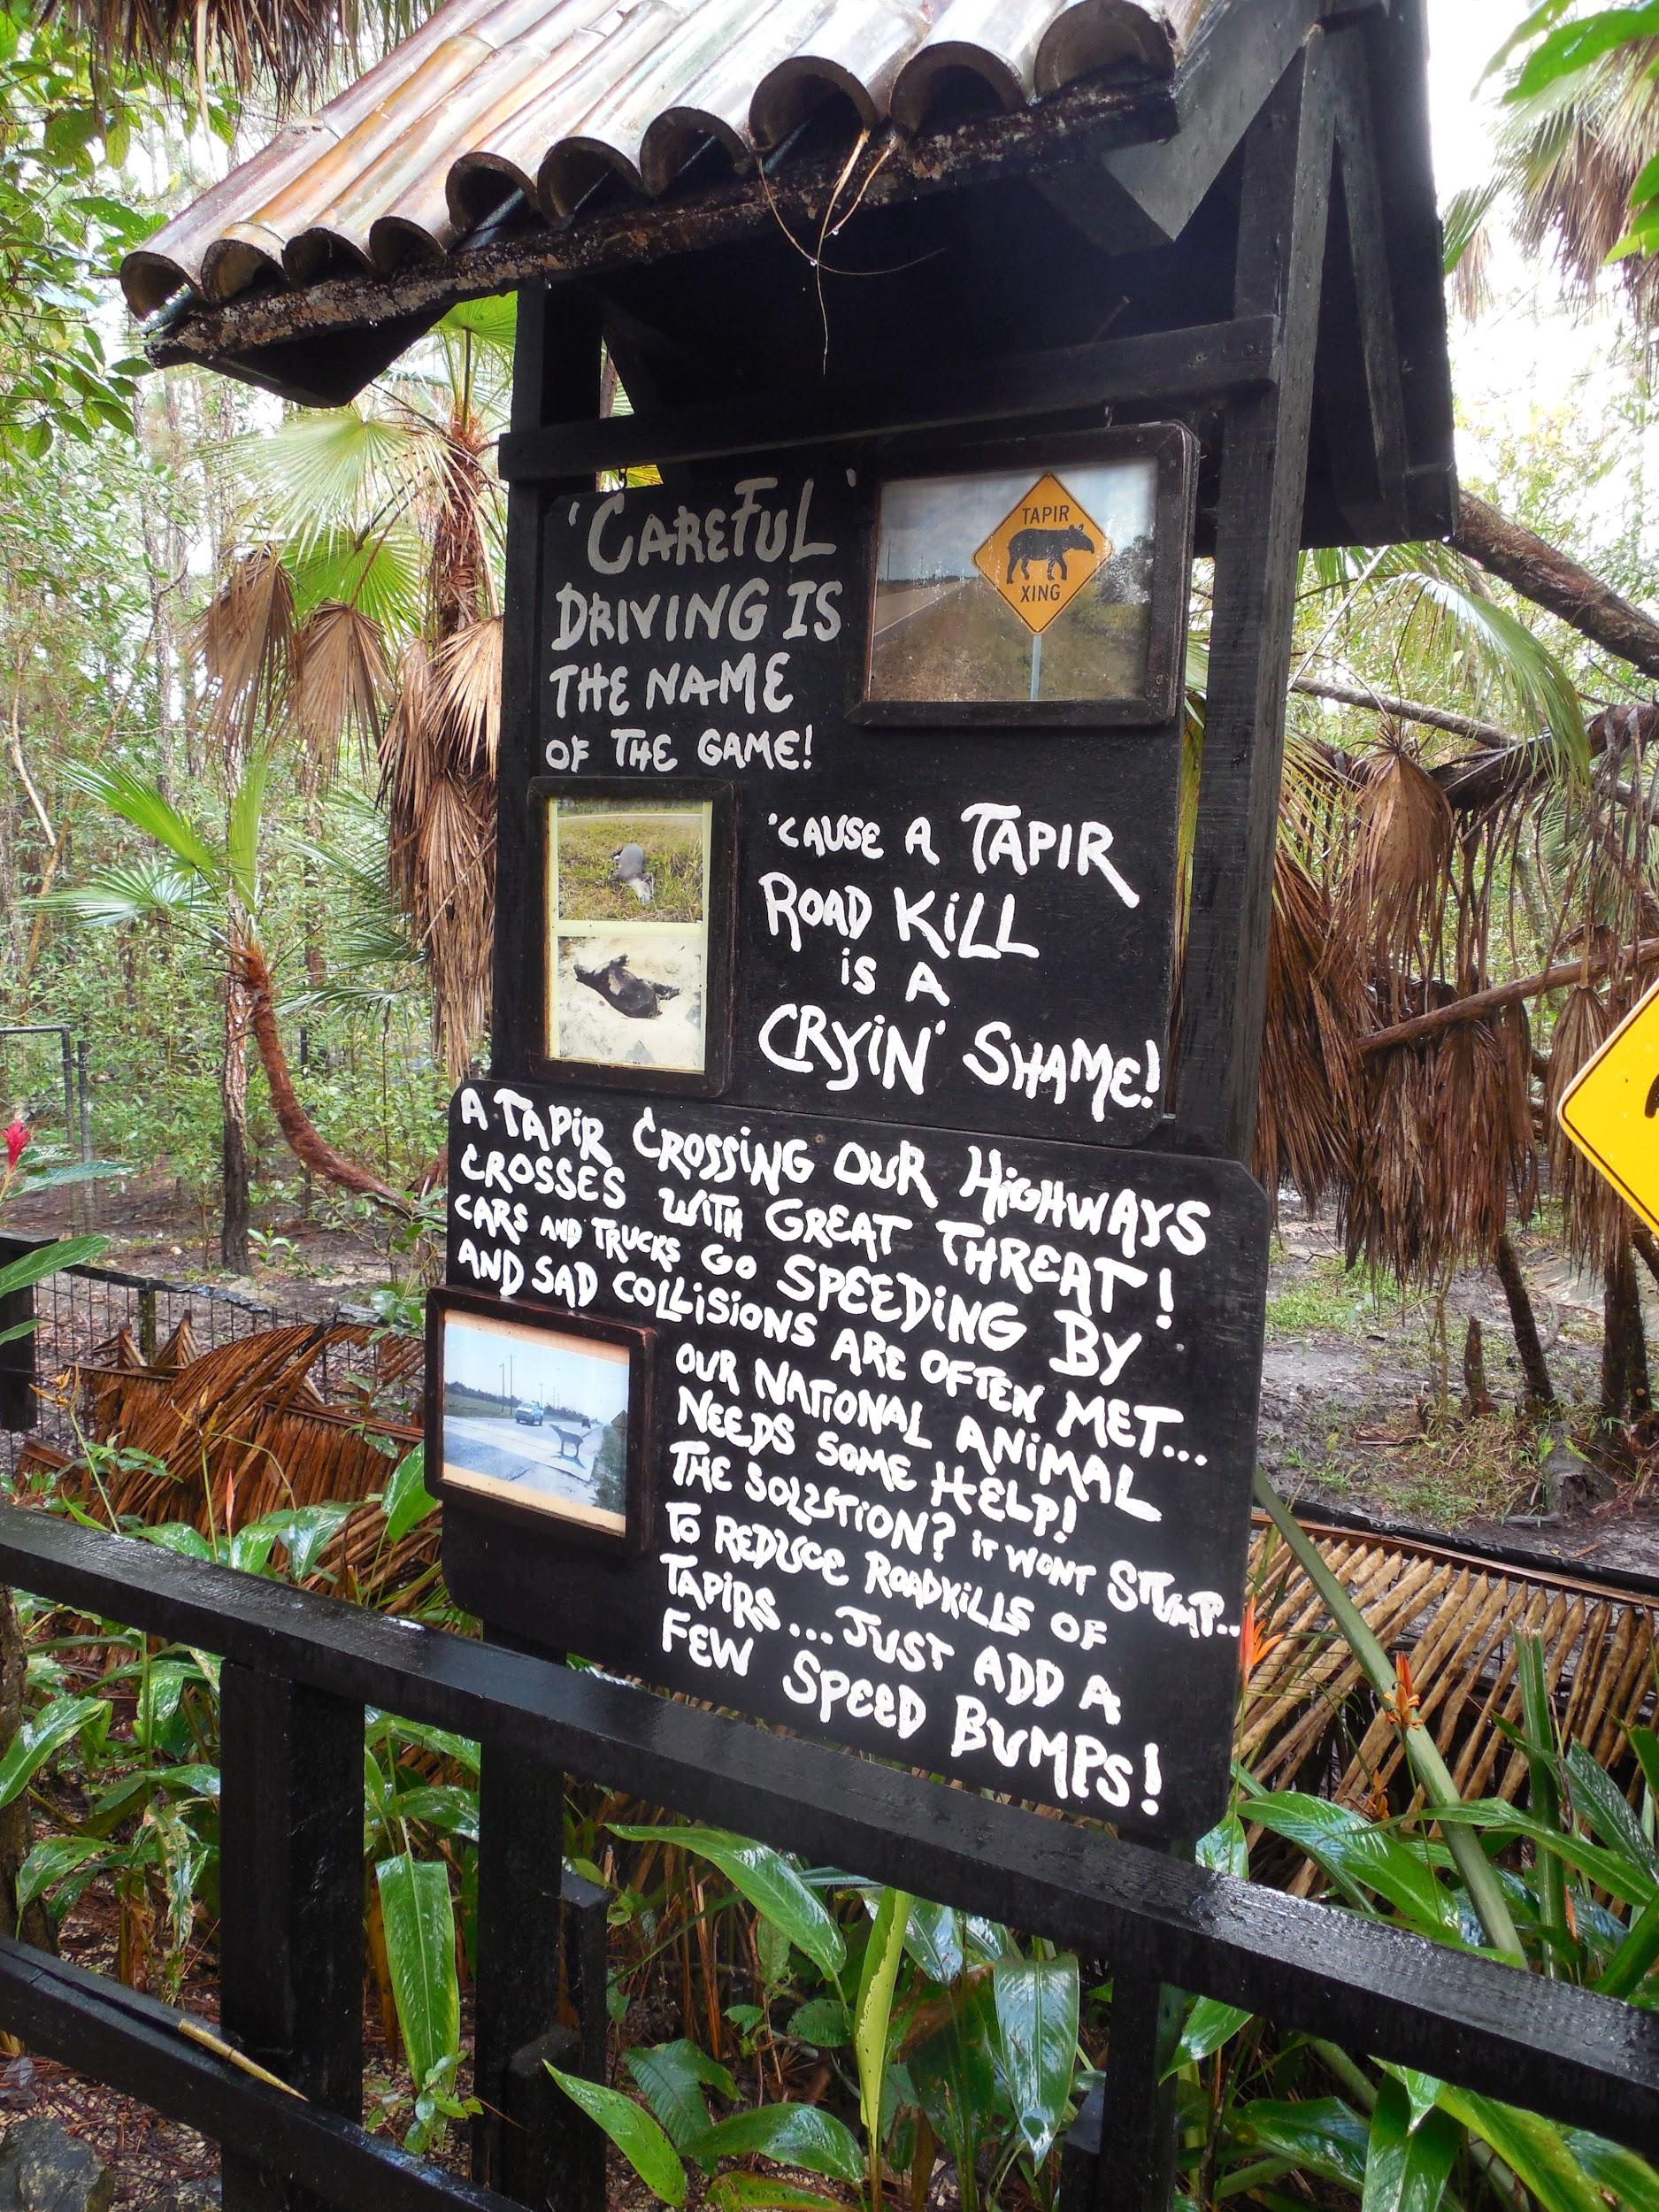 'CAREFUL'
DRIVING IS
THE NAME
OF THE GAME!
TAPIR
XING
'CAUSE A TAPIR
ROAD KILL
IS A
CRYIN' SHAME!
A TAPIR CROSSING OUR HIGHWAYS
CROSSES WITH GREAT THREAT!
CARS AND TRUCKS GO SPEEDING BY
AND SAD COLLISIONS ARE OFTEN MET...
OUR NATIONAL ANIMAL
NEEDS SOME HELP!
THE SOLUTION? IT WONT STUMP..
TO REDUCE ROADKILLS OF
TAPIRS... JUST ADD A
FEW SPEED BUMPS!